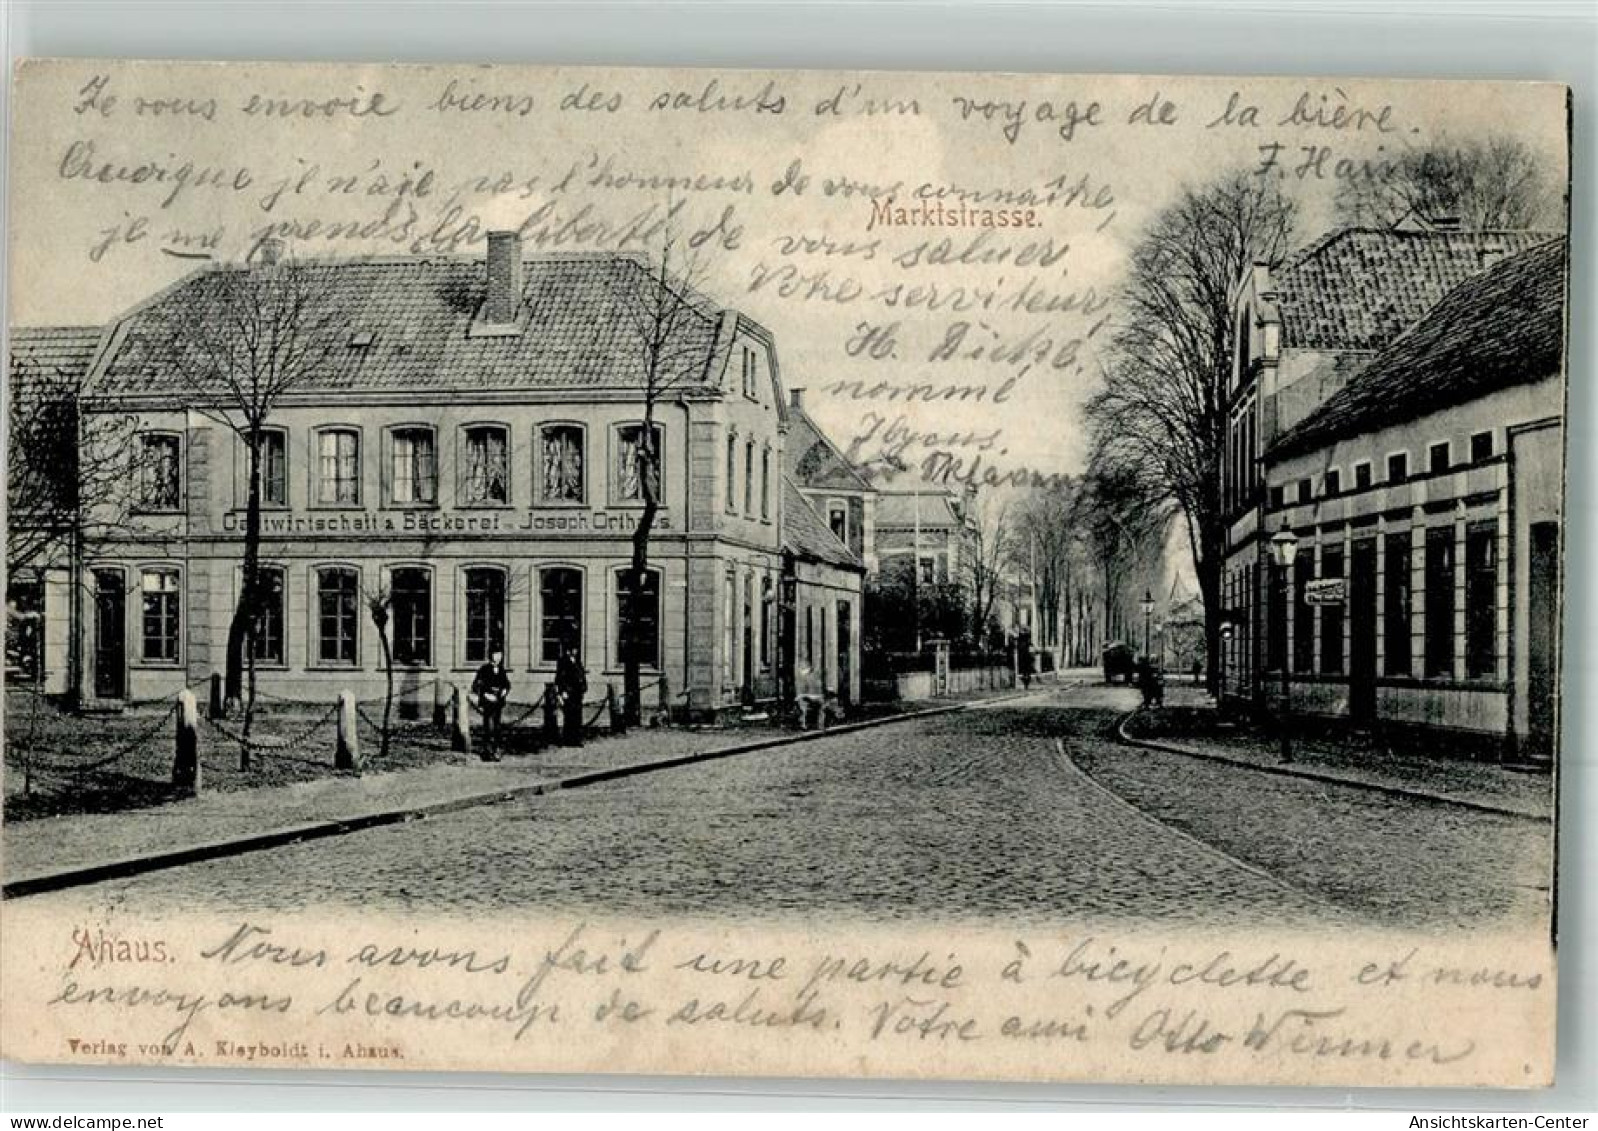 Je vous envoie biens des saluts d'un voyage de la bière.
F. Hain
Quoique je n'aie pas l'honneur de vous connaître,
Marktstrasse.
je me prends la liberté de vous saluer
Votre serviteur,
H.
nommé
Gastwirtschaft & Bäckerei v. Joseph Orthaus.
Ahaus. Nous avons fait une partie à bicyclette et nous
envoyons beaucoup de saluts. Votre ami Otto Wimmer
Verlag von A. Kleyboldt i. Ahaus.
Ansichtskarten-Center